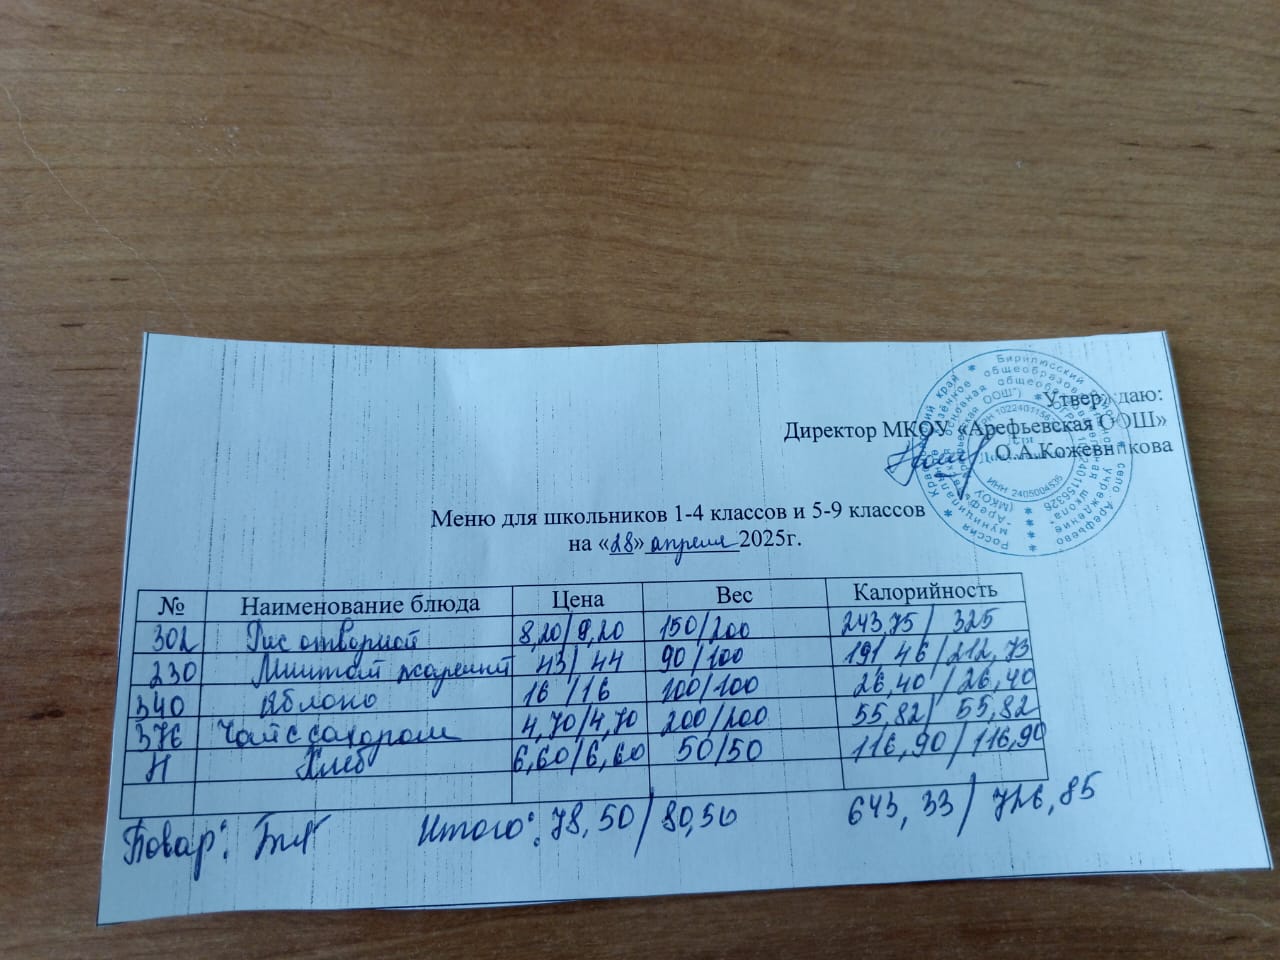 Утверждаю:
Директор МКОУ «Арефьевская ООШ»
О.А.Кожевникова
Меню для школьников 1-4 классов и 5-9 классов
на «28» апреля 2025г.
№ Наименование блюда Цена Вес Калорийность
302 Рис отварной 8,20/9,20 150/200 243,75/ 325
230 Минтай жареный 43/44 90/100 191 46/212,73
340 Яблоко 16/16 100/100 26,40/26,40
376 Чай с сахаром 4,70/4,70 200/200 55,82/ 55,82
Н Хлеб 6,60/6,60 50/50 116,90/116,90
Повар: Итого: 78,50/80,50 643,33/ 726,85